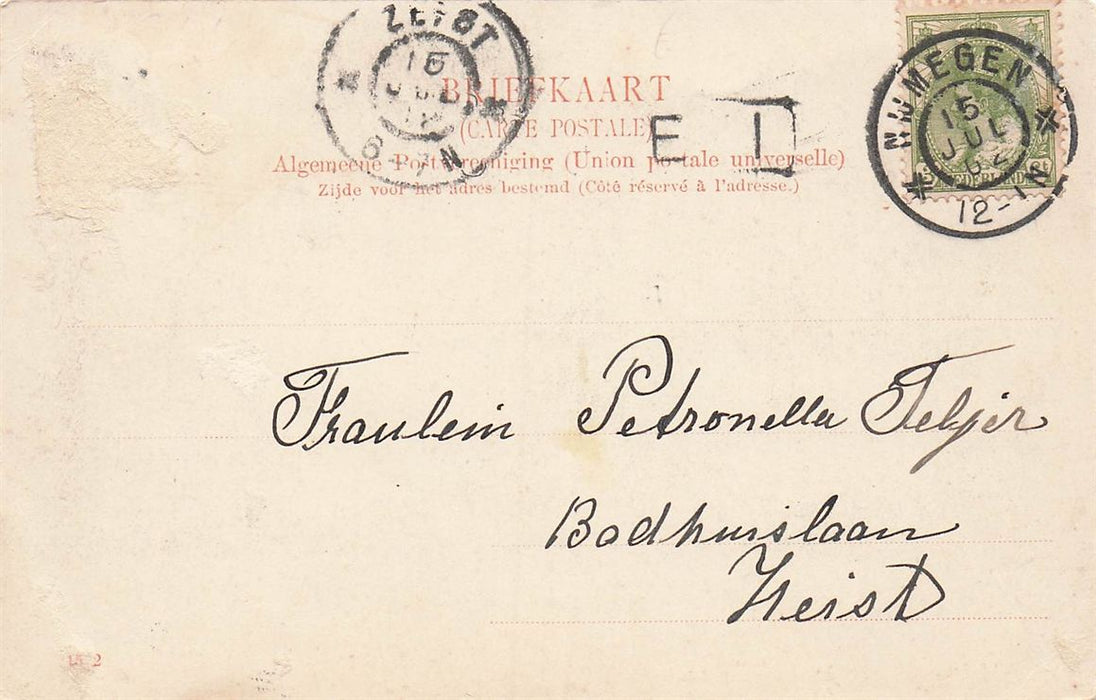 ZEIST
15
JUL
6-7N
BRIEFKAART
(CARTE POSTALE)
Algemeene Postvereeniging (Union postale universelle)
Zijde voor het adres bestemd (Côté réservé à l'adresse.)
E I
NIJMEGEN
15
JUL
02
12-1N
NEDERLAND
Fraulein Petronella Tekjer
Badhuislaan
Heist